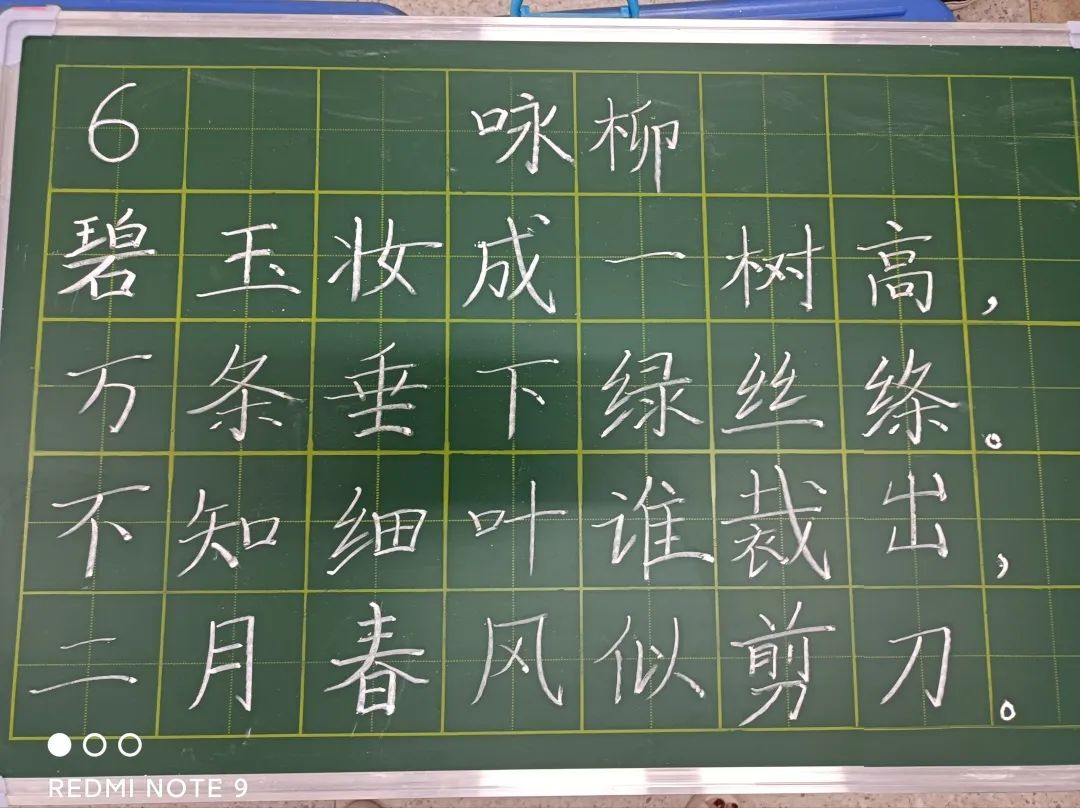 6 咏柳
碧玉妆成一树高，
万条垂下绿丝绦。
不知细叶谁裁出，
二月春风似剪刀。
REDMI NOTE 9